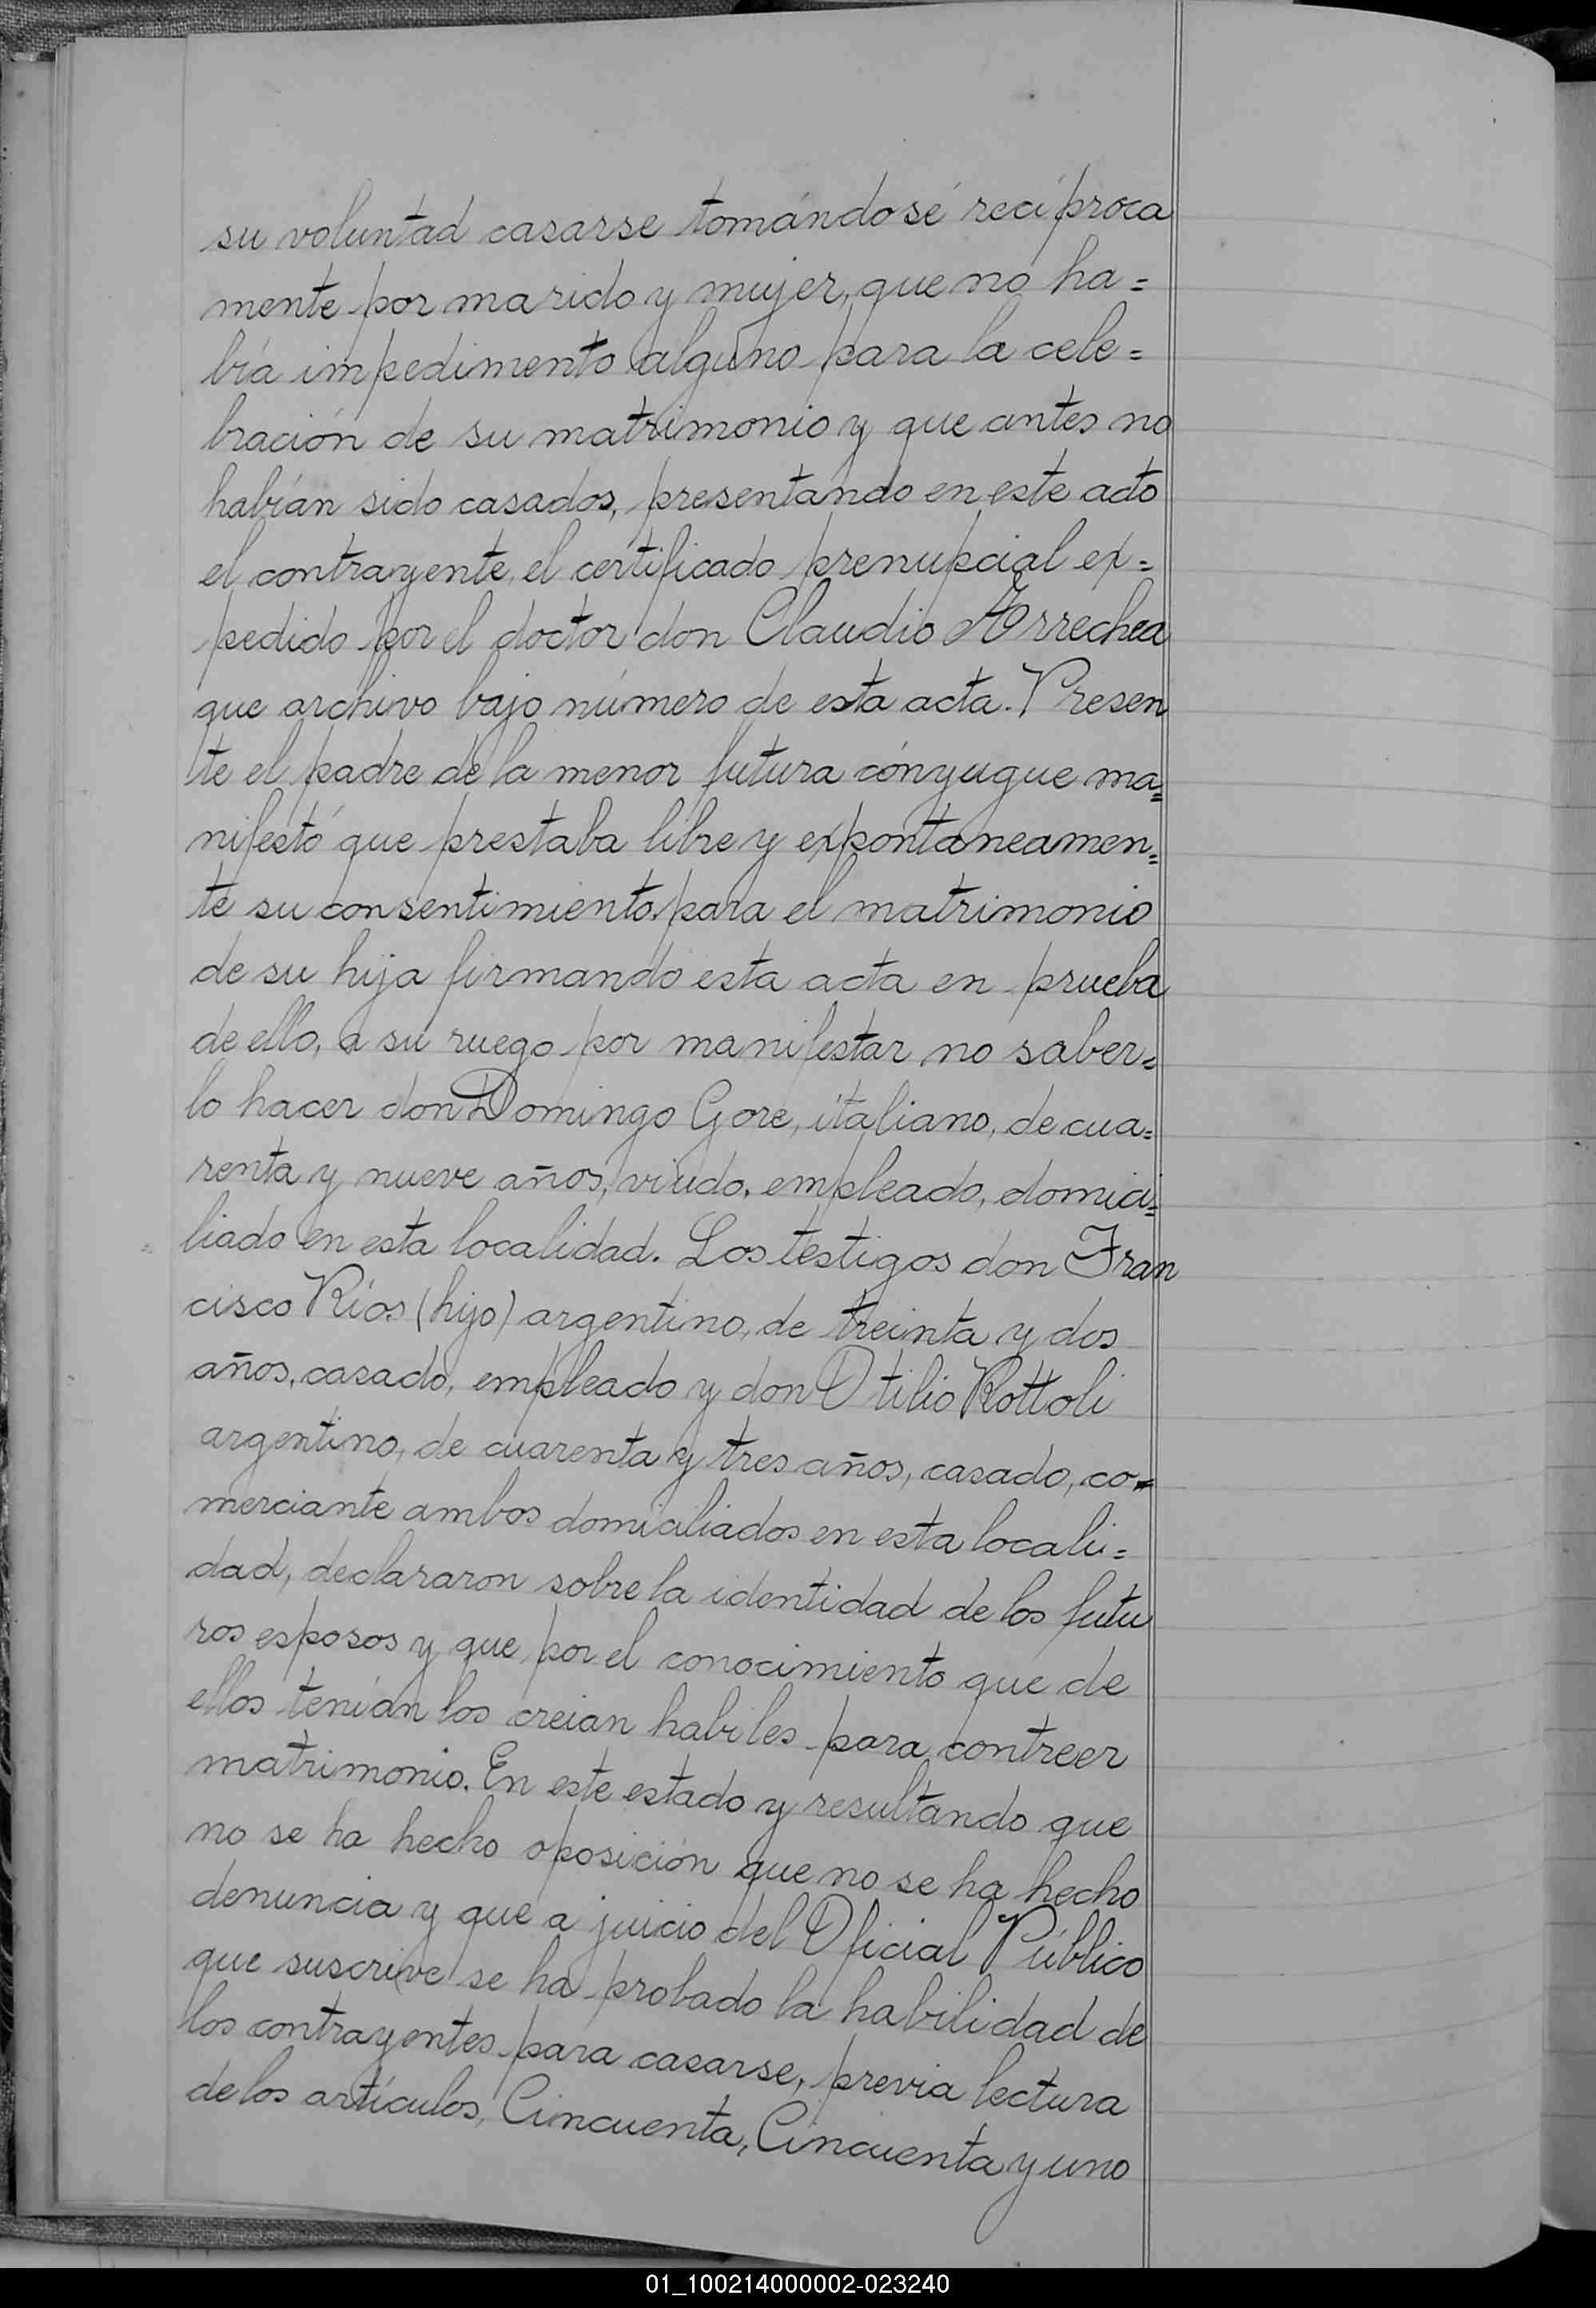 su voluntad casarse tomándosé recíproca
mente por marido y mujer, que no ha=
bía impedimento alguno para la cele=
bración de su matrimonio y que antes no
habían sido casados, presentando en este acto
el contrayente, el certificado prenupcial ex=
pedido por el doctor don Claudio Arrechea
que archivo bajo número de esta acta. Presen
te el padre de la menor futura cónyugue ma=
nifestó que prestaba libre y expontaneamen=
te su consentimiento para el matrimonio
de su hija firmando esta acta en prueba
de ello, a su ruego por manifestar no saber=
lo hacer don Domingo Gore, italiano, de cua=
renta y nueve años, viudo, empleado, domici=
liado en esta localidad. Los testigos don Fran
cisco Ríos (hijo) argentino, de treinta y dos
años, casado, empleado y don Otilio Rottoli
argentino, de cuarenta y tres años, casado, co=
merciante ambos domiciliados en esta locali=
dad, declararon sobre la identidad de los futu
ros esposos y que por el conocimiento que de
ellos tenían los creian habiles para contreer
matrimonio. En este estado y resultando que
no se ha hecho oposición que no se ha hecho
denuncia y que a juicio del Oficial Público
que suscrive se ha probado la habilidad de
los contrayentes para casarse, previa lectura
de los artículos, Cincuenta, Cincuenta y uno
01_100214000002-023240